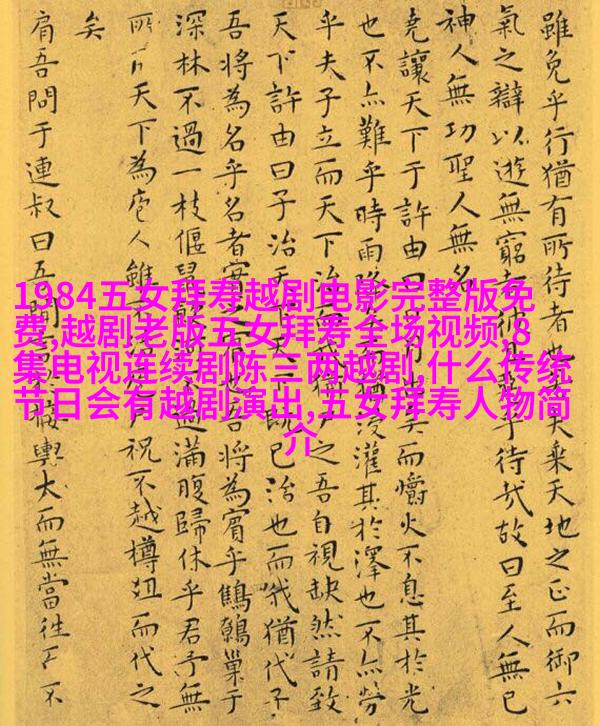 1984五女拜寿越剧电影完整版免
费,越剧老版五女拜寿全场视频,8
集电视连续剧陈三两越剧,什么传统
节日会有越剧演出,五女拜寿人物简
介
雖免乎行猶有所待者也夫乘天地之正而御六
氣之辯以遊無窮者彼乎待哉故曰至人無己
神人無功聖人無名
堯讓天下于許由曰月矣而爝火不息其於光
也不亦難乎時雨降猶浸灌其於澤也不亦勞
乎夫子立而天下治之吾自視缺然請致
天下許由曰子治天既已治也而我猶代子
吾將為名乎名者實之也吾將為賓乎鷦鷯巢于
深林不過一枝偃鼠過滿腹歸休乎君予無
所天下為庖人雖不祝不越樽俎而代之
矣
肩吾問于連叔曰吾聞接輿大而無當往不